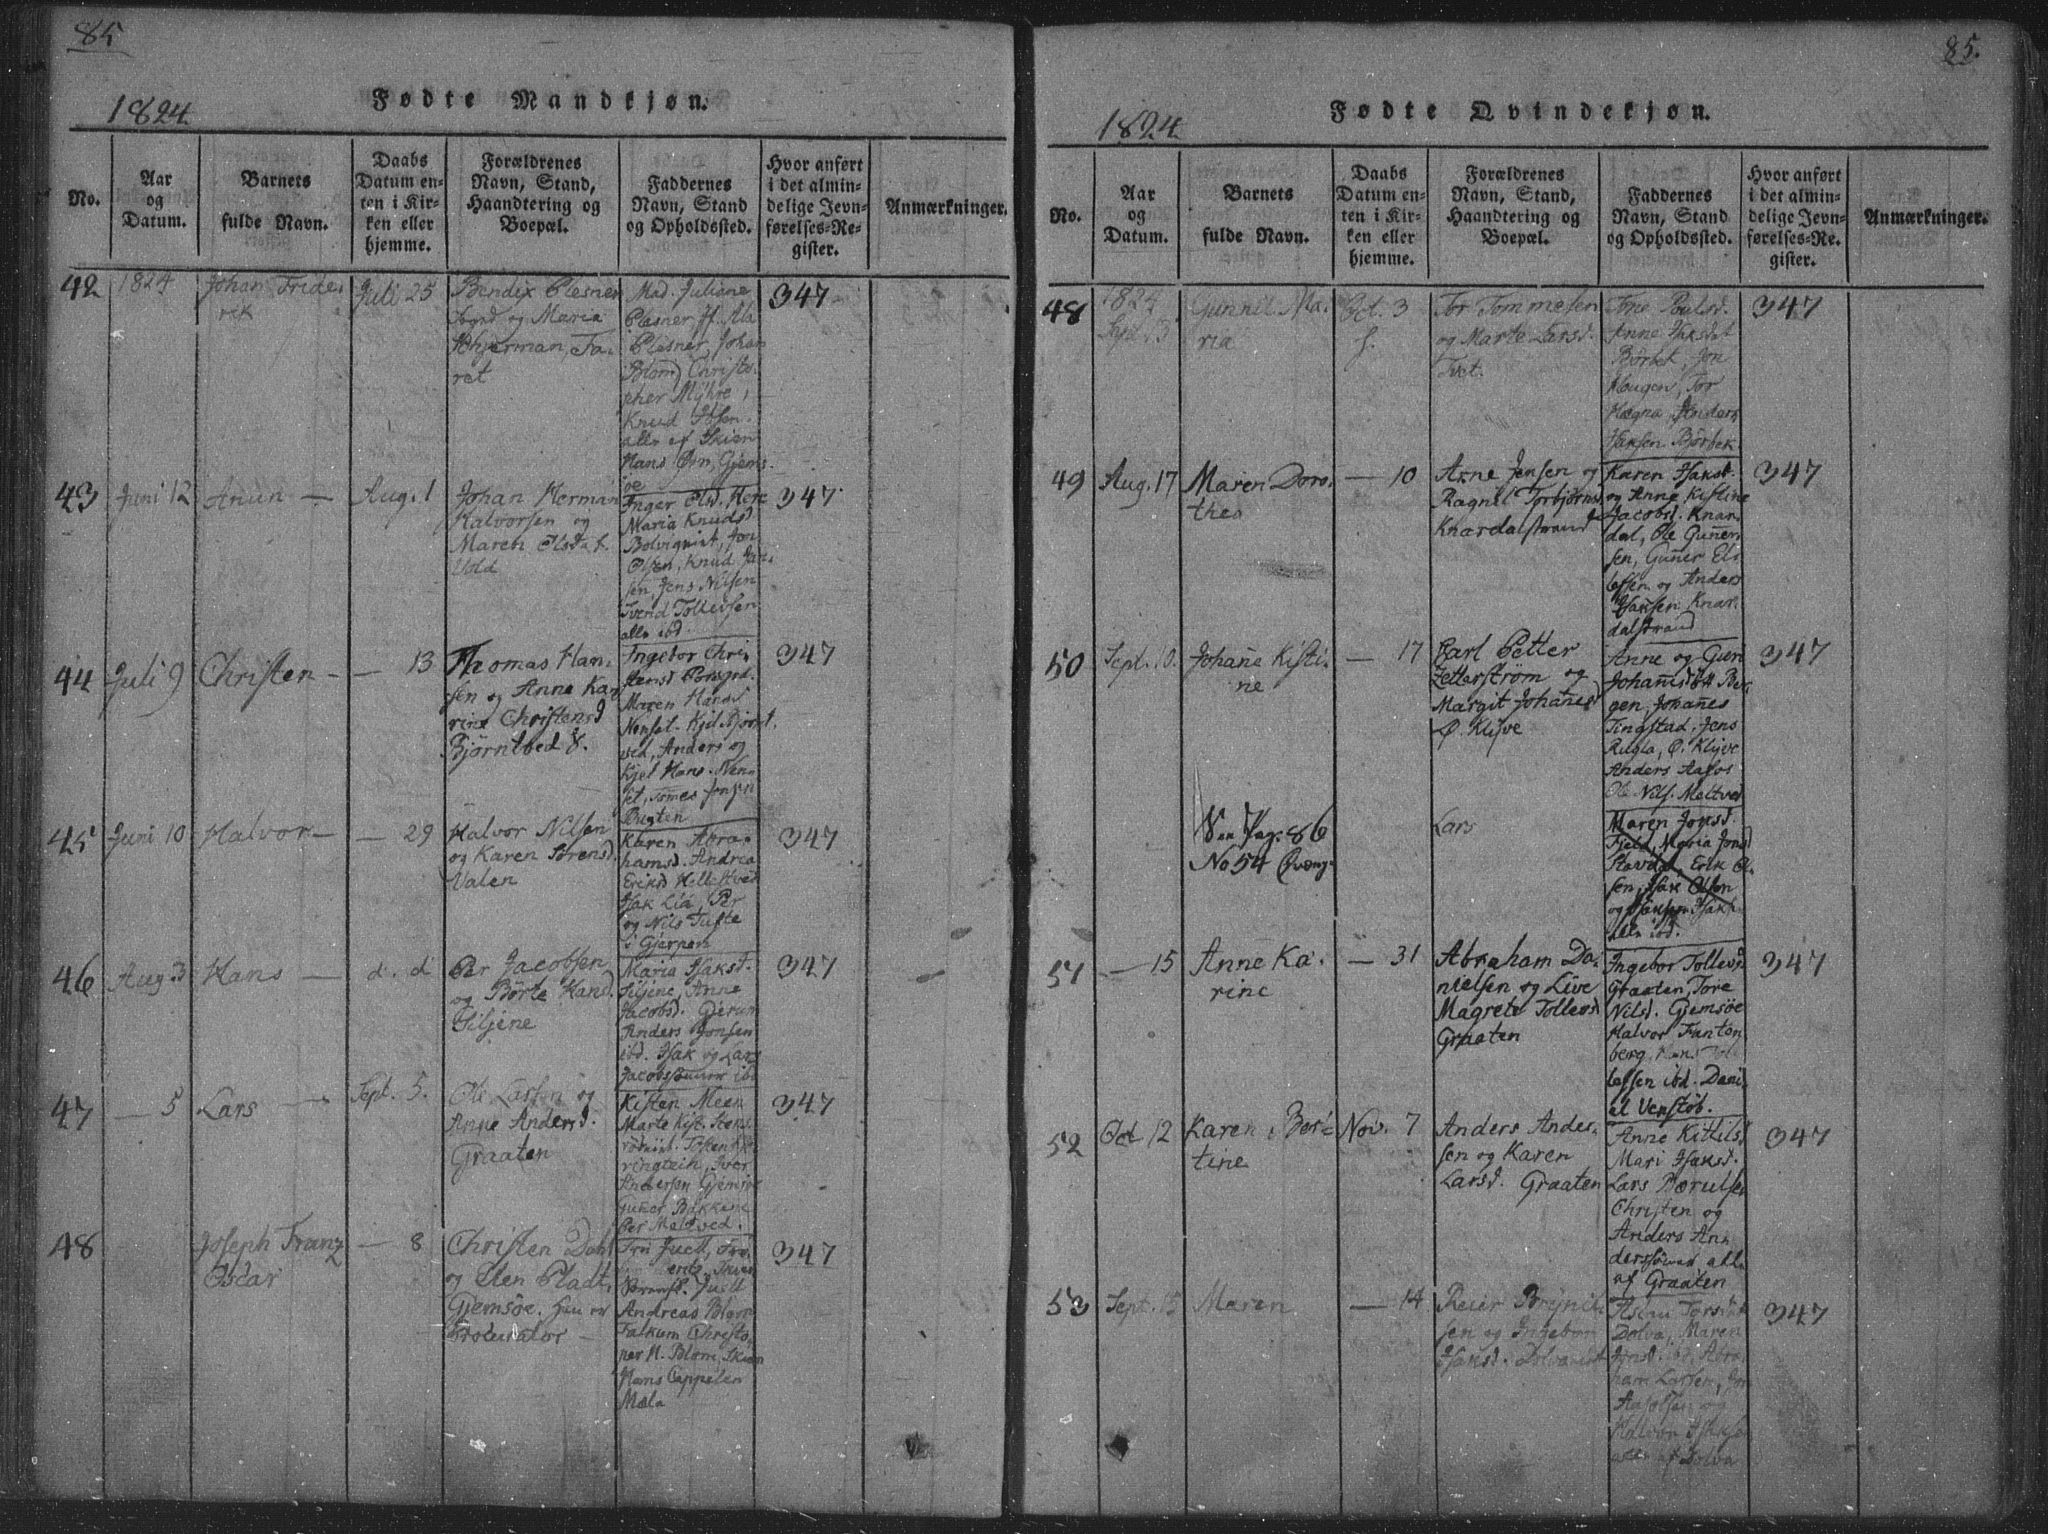 85
Fødte Mandkjøn.
1824
No.
Aar
og
Datum.
Barnets
fulde Navn.
Daabs
Datum en-
ten i Kir-
ken eller
hjemme.
Forældrenes
Navn, Stand,
Haandtering og
Boepæl.
Faddernes
Navn, Stand
og Opholdssted.
Hvor anført
i det almin-
delige Jevn-
førelses-Re-
gister.
Anmærkninger.
42
1824
Johan Fride-
rik
Juli 25
Bendix Plesner
og Maria
Faret
Mad. Juliane
Plesner
Plesner, Johan
Blom, Christo-
pher Myhre,
Knud Ibsen
alle af Skien
Hans Ørn, Gjems-
øe
347
43
Juni 12
Anun —
Aug. 1
Johan Herman
Halvorsen og
Maren Olsdat.
Vold
Inger Olsd.
Maria Knudsd
Bolvigmint, Jon
Olsen, Knud Jan-
sen, Jens Nilsen
Svend Tollevsen
alle ibd.
347
44
Juli 9
Christen —
— 13
Thomas Han-
sen og Anne Ka-
rine Christensd
Bjørntved
Ingebor Chri-
stensd Porsgrd.
Maren Hansd
Nenset. Kjel Bjørnt-
ved, Anders og
Kjel Hans. Nen-
set, Tomes Jensen
Bugten
347
45
Juni 10
Halvor —
— 29
Halvor Nilsen
og Karen Sørensd.
Valen
Karen Abra-
hamsd. Andrea
Eriksd Hellestved
Isak Lia, Per
og Nils Tufte
i Gjerpen
347
46
Aug. 3
Hans —
d. d
Per Jacobsen
og Børte Hansd.
Siljene
Maria Isaksd.
Siljene, Anne
Jacobsd. Gjerum
Anders Jonsen
ibd. Isak og Lars
Jacobssønner ibd
347
47
— 5
Lars —
Sept. 5.
Ole Larsen og
Anne Andersd.
Graaten
Kisten Meen
Marte Kist. Stens-
Iver
Andersen Gjemsøe
Guner Bakkene
Per Meltved.
347
48
Joseph Franz
Oscar
— 8
Christen Dahl
og Elen Pladt,
Gjemsøe. Han er
Procurator —
Fru Juell,
Andreas Blom
Falkum Christo-
per H. Blom, Skien
Hans Cappelen
Mæla
347
85.
Fødte Qvindekjøn.
1824
No.
Aar
og
Datum.
Barnets
fulde Navn.
Daabs
Datum en-
ten i Kir-
ken eller
hjemme.
Forældrenes
Navn, Stand,
Haandtering og
Boepæl.
Faddernes
Navn, Stand
og Opholdssted.
Hvor anført
i det almin-
delige Jevn-
førelses-Re-
gister.
Anmærkninger.
48
1824
Sept. 13
Gunnil Ma-
ria
Oct. 3
Tor Tommesen
og Marte Larsd.
Tvet.
Tone Poulsd.
Anne Isaksdat
Børbek, Jon
Haugen, Tor
Hægna, Anders
Isaksen Børbek
347
49
Aug. 17
Maren Doro-
thea
— 10
Arne Jensen og
Ragnil Torbjørnsd
Knardalstrand
Karen Isaksd.
og Anne Kistine
Jacobsd. Knar-
dal, Ole Guner-
sen, Guner El-
lefsen og Anders
Isaksen Knar-
dalstrand
347
50
Sept. 10.
Johane Kisti-
ne
— 17
Carl Petter
Zetterstrøm og
Margit Johanesd
Ø. Klyve
Anne og Gun
Johanesd
gen, Johanes
Tingstad, Jens
Rugla, Ø. Klyve
Anders Aafos
Ole Nils. Meltved
347
Pag. 86
No 54
Lars
Maren Jonsd.
Fjeld, Maria Jonsd
Stavdal, Erik Ol-
sen, Isak Olsen
og Isak
alle ibd.
51
— 15
Anne Ka-
rine
— 31
Abraham Da-
nielsen og Live
Magrete Tollevsd
Graaten
Ingebor Tollevsd
Graaten, Tore
Nilsd. Gjemsøe
Halvor Fanton-
berg,
lefsen ibd. Dani-
el Venstøb.
347
52
Oct 12
Karen Ber-
tine
Nov. 7
Anders Ander-
sen og Karen
Larsd. Graaten
Anne Kittilsd
Mari Isaksd.
Lars Bærulsen
Christen og
Anders An-
derssøner alle
af Graaten
347
53
Sept. 15
Maren
— 14
Reier Brynil-
sen og Ingebor
Isaksd. Dolva
Dolva, Maren
Jonsd. ibd. Abra-
ham Larsen,
og
Halvor Isaksen
alle af Dolva
347